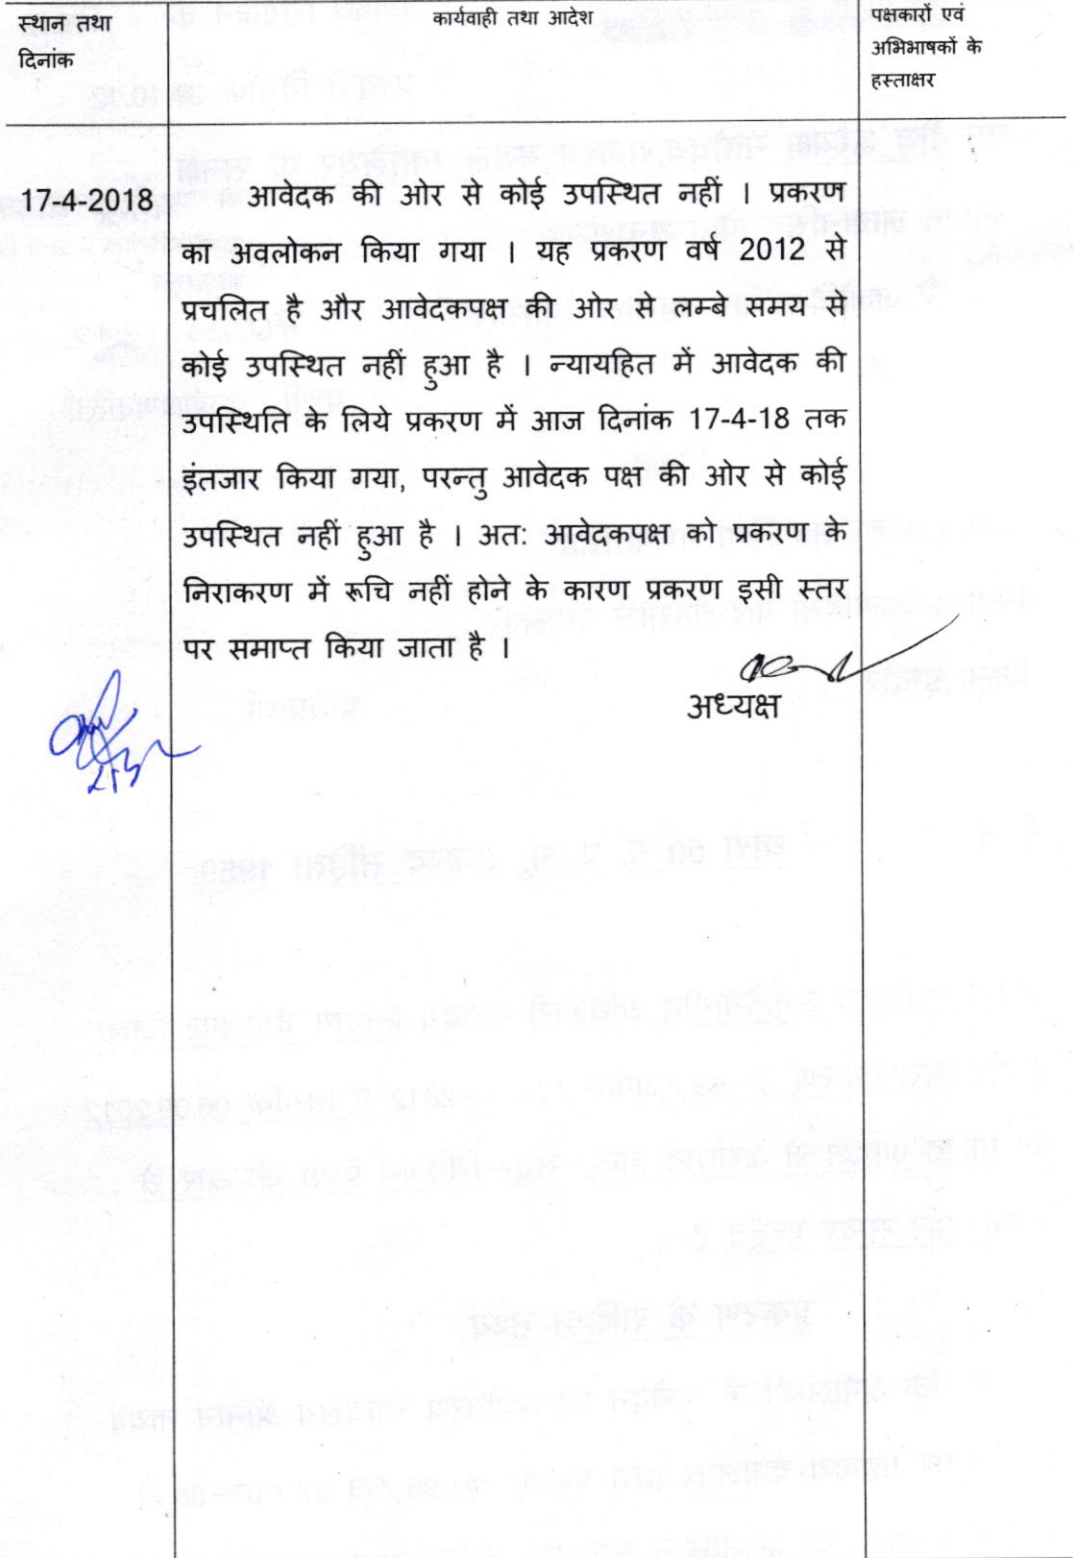 स्थान तथा
दिनांक
कार्यवाही तथा आदेश
पक्षकारों एवं
अभिभाषकों के
हस्ताक्षर
17-4-2018
आवेदक की ओर से कोई उपस्थित नहीं । प्रकरण
का अवलोकन किया गया । यह प्रकरण वर्ष 2012 से
प्रचलित है और आवेदकपक्ष की ओर से लम्बे समय से
कोई उपस्थित नहीं हुआ है । न्यायहित में आवेदक की
उपस्थिति के लिये प्रकरण में आज दिनांक 17-4-18 तक
इंतजार किया गया, परन्तु आवेदक पक्ष की ओर से कोई
उपस्थित नहीं हुआ है । अत: आवेदकपक्ष को प्रकरण के
निराकरण में रूचि नहीं होने के कारण प्रकरण इसी स्तर
पर समाप्त किया जाता है ।
अध्यक्ष